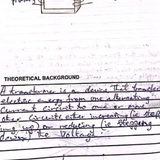 THEORETICAL BACKGROUND
A transformer is a device that transfers
electric energy from one alternating
current circuit to one or more
other circuits either increasing (ie stepp
ing up) or reducing (ie stepping
down) the voltage